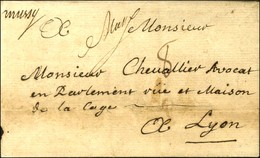 mussy
A Monsieur
Monsieur Chevallier Avocat
en Parlement rüe et Maison
de la Cage
A Lyon